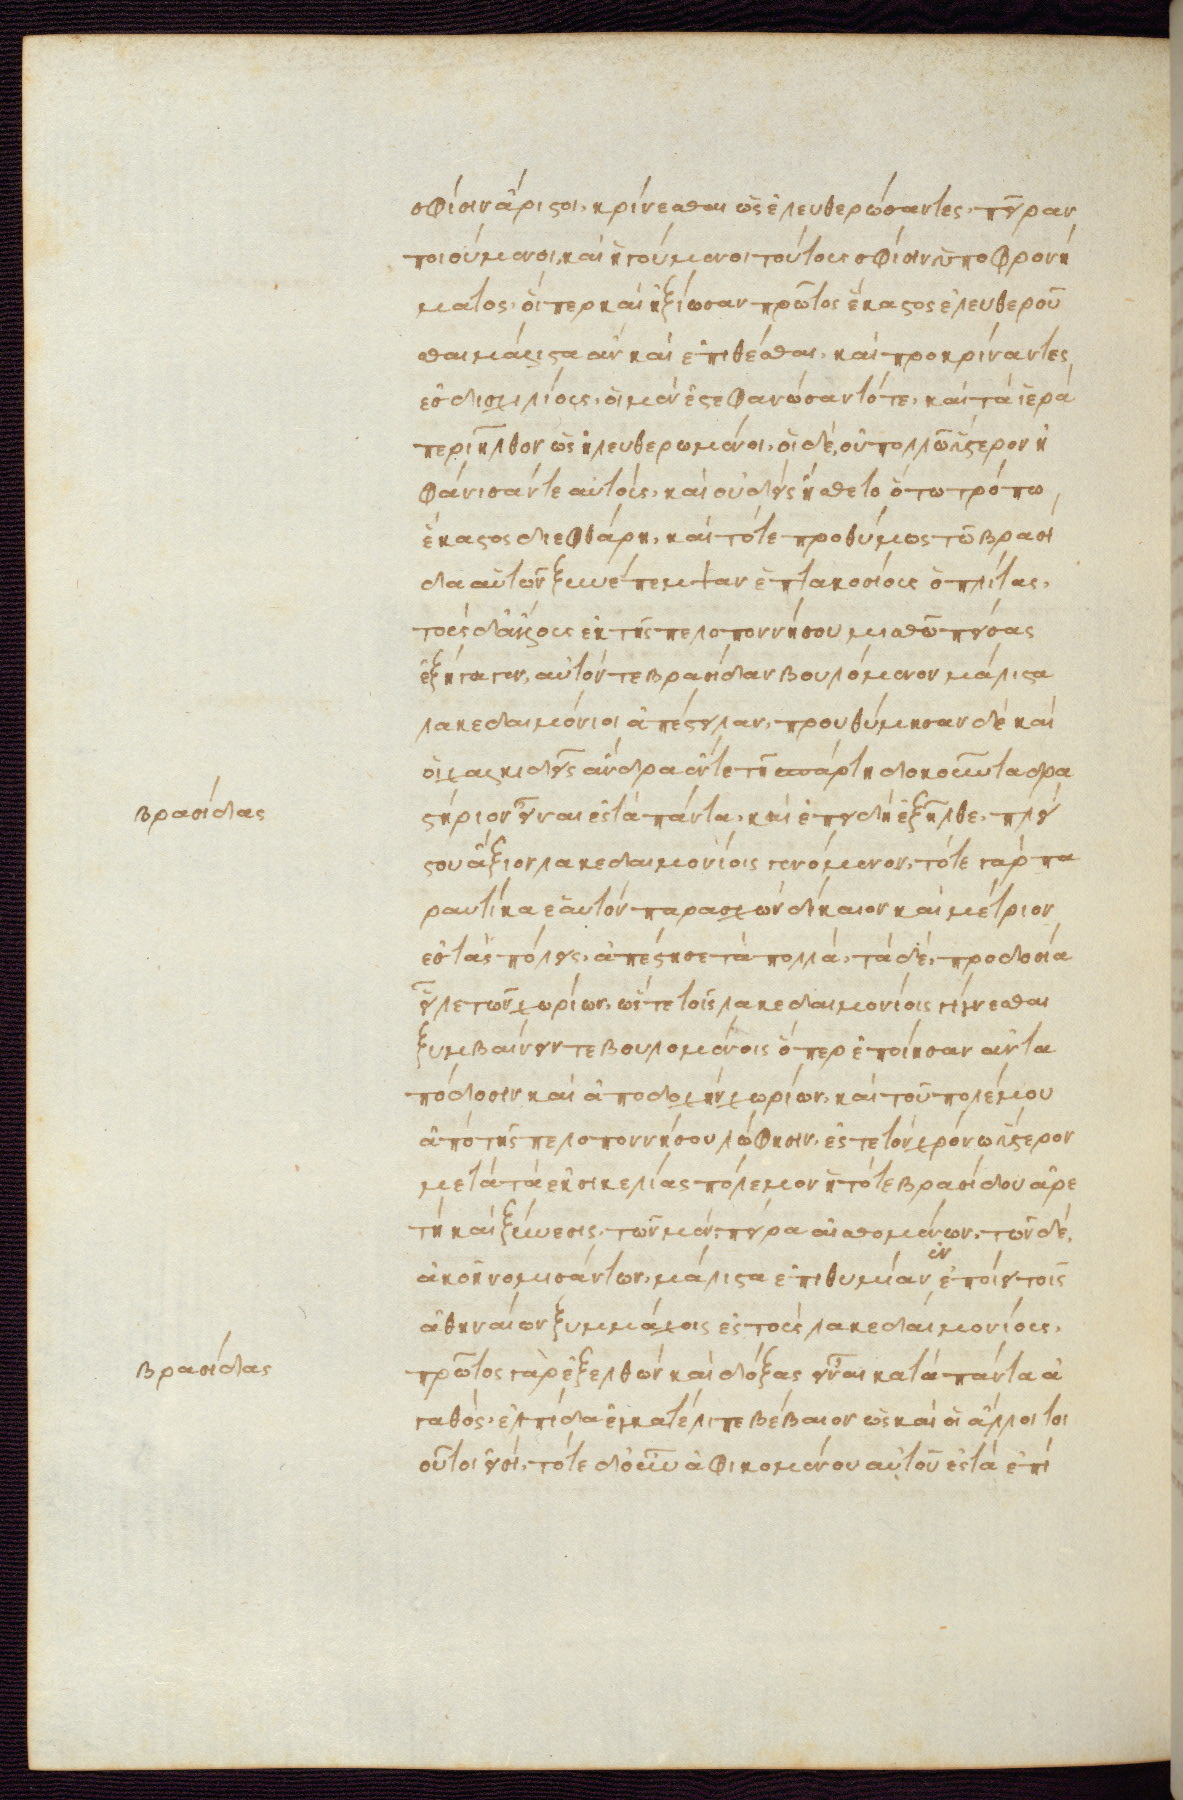 σφίσιν ἄριστοι, κρίνεσθαι ὡς ἐλευθερώσαντες, πεῖραν
ποιούμενοι, καὶ ἡγούμενοι τούτους σφίσιν ὑπὸ φρονή
ματος, οἵπερ καὶ ἠξίωσαν πρῶτος ἕκαστος ἐλευθεροῦ
σθαι μάλιστα ἂν καὶ ἐπιθέσθαι, καὶ προκρίναντες
ἐς δισχιλίους, οἱ μὲν ἐστεφανώσαντό τε, καὶ τὰ ἱερὰ
περιῆλθον ὡς ἠλευθερωμένοι, οἱ δὲ, οὐ πολλῶ ὕστερον ἠ
φάνισάν τε αὐτοὺς, καὶ οὐδεὶς ἤσθετο ὅτω τρόπω
ἕκαστος διεφθάρη, καὶ τότε προθύμως τῶ βρασί
δα αὐτῶν ξυνέπεμψαν ἑπτακοσίους ὁπλίτας,
τοὺς δ' ἄλλους ἐκ τῆς πελοποννήσου μισθῶ πείσας
ἐξήγαγεν, αὐτόν τε βρασίδαν βουλόμενον μάλιστα
λακεδαιμόνιοι ἀπέστειλαν, προυθύμησαν δὲ καὶ
οἱ χαλκιδεῖς ἄνδρα ἔν τε τῆ σπάρτη δοκοῦντα δρα
στήριον εἶναι ἐς τὰ πάντα, καὶ ἐπειδὴ ἐξῆλθε, πλεί
στου ἄξιον λακεδαιμονίοις γενόμενον, τότε γὰρ πα
ραυτίκα ἑαυτὸν παρασχὼν δίκαιον καὶ μέτριον
ἐς τὰς πόλεις, ἀπέστησε τὰ πολλὰ, τὰ δὲ, προδοσία
εἷλε τῶν χωρίων, ὥστε τοῖς λακεδαιμονίοις γίγνεσθαι
ξυμβαίνειν τε βουλομένοις ὅπερ ἐποίησαν ἀντα
πόδοσιν καὶ ἀποδοχὴν χωρίων, καὶ τοῦ πολέμου
ἀπὸ τῆς πελοποννήσου λώφησιν, ἔς τε τὸν χρόνω ὕστερον
μετὰ τὰ ἐκ σικελίας πόλεμον ἡ τότε βρασίδου ἀρε
τὴ καὶ ξύνεσις, τῶν μὲν, πείρα αἰσθομένων, τῶν δὲ,
ἀκοῆ νομισάντων, μάλιστα ἐπιθυμίαν ἐνεποίει τοῖς
ἀθηναίων ξυμμάχοις ἐς τοὺς λακεδαιμονίους,
πρῶτος γὰρ ἐξελθὼν καὶ δόξας εἶναι κατὰ πάντα ἀ
γαθὸς, ἐλπίδα ἐγκατέλιπε βέβαιον ὡς καὶ οἱ ἄλλοι τοι
οῦτοί εἰσι, τότε δ' οὖν ἀφικομένου αὐτοῦ ἐς τὰ ἐπὶ
βρασίδας
βρασίδας